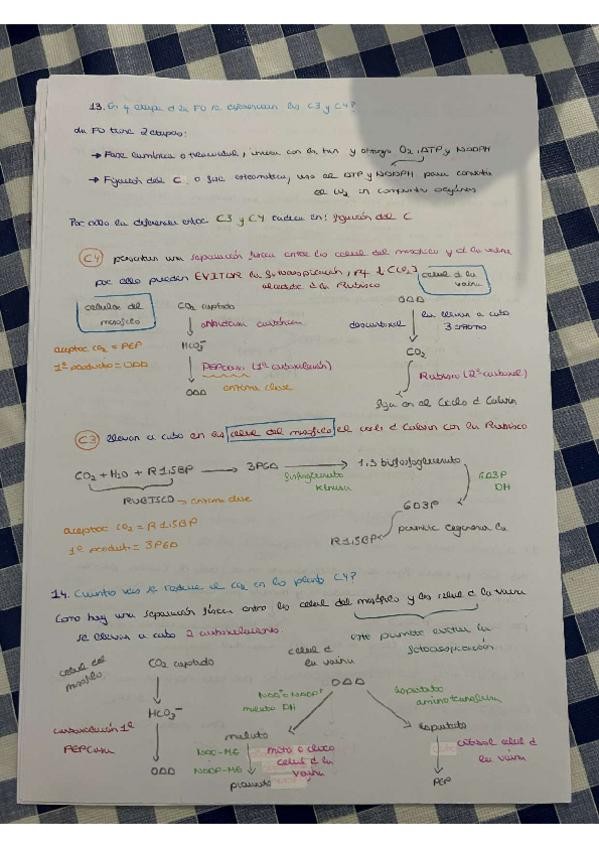 13. En q etapa d la FO se diferencian las C3 y C4?
La FO tiene 2 etapas:
→ Fase lumínica o tilacoidal, inicia con la luz y otorga O₂, ATP y NADPH
→ Fijación del C o fase estromática, usa el ATP y NADPH para convertir
el CO₂ en compuestos orgánicos
Por ello la diferencia entre C3 y C4 radica en: fijación del C
C4 presentan una separación física entre las celul del mesofilo y d la vaina
por ello pueden EVITAR la fotorrespiración, ↑ [CO₂]
alrededor d la Rubisco
células del
mesofilo
CO₂ captado
anhidrasa carbónica
HCO₃⁻
PEPcasa (1ª carboxilación)
OAA enzima clave
aceptor CO₂ = PEP
1º producto = OAA
celul d la
vaina
OAA
descarboxil
la llevan a cabo
3 enzimas
CO₂
Rubisco (2ª carboxil)
fija en el Ciclo d Calvin
C3 llevan a cabo en las celul del mesofilo el ciclo d Calvin con la Rubisco
CO₂ + H₂O + R1,5BP → 3PGA → 1,3 bifosfoglicerato
fosfoglicerato
kinasa
RUBISCO → enzima clave
GA3P
DH
GA3P
permite regenerar la
R1,5BP
aceptor CO₂ = R1,5BP
1º producto = 3PGA
14. Cuantas veces se reduce el CO₂ en las plantas C4?
Como hay una separación física entre las celul del mesofilo y las celul d la vaina
se llevan a cabo 2 carboxilaciones.
esto permite evitar la
fotorrespiración
celul del
mesofilo
CO₂ captado
HCO₃⁻
carboxilación 1ª
PEPCasa
OAA
celul d
la vaina
OAA
NAD⁺ o NADP⁺
malato DH
aspartato
aminotransferasa
malato
NAD-ME
NADP-ME
mito o cloro
celul d la
vaina
piruvato
aspartato
citosol celul d
la vaina
PEP